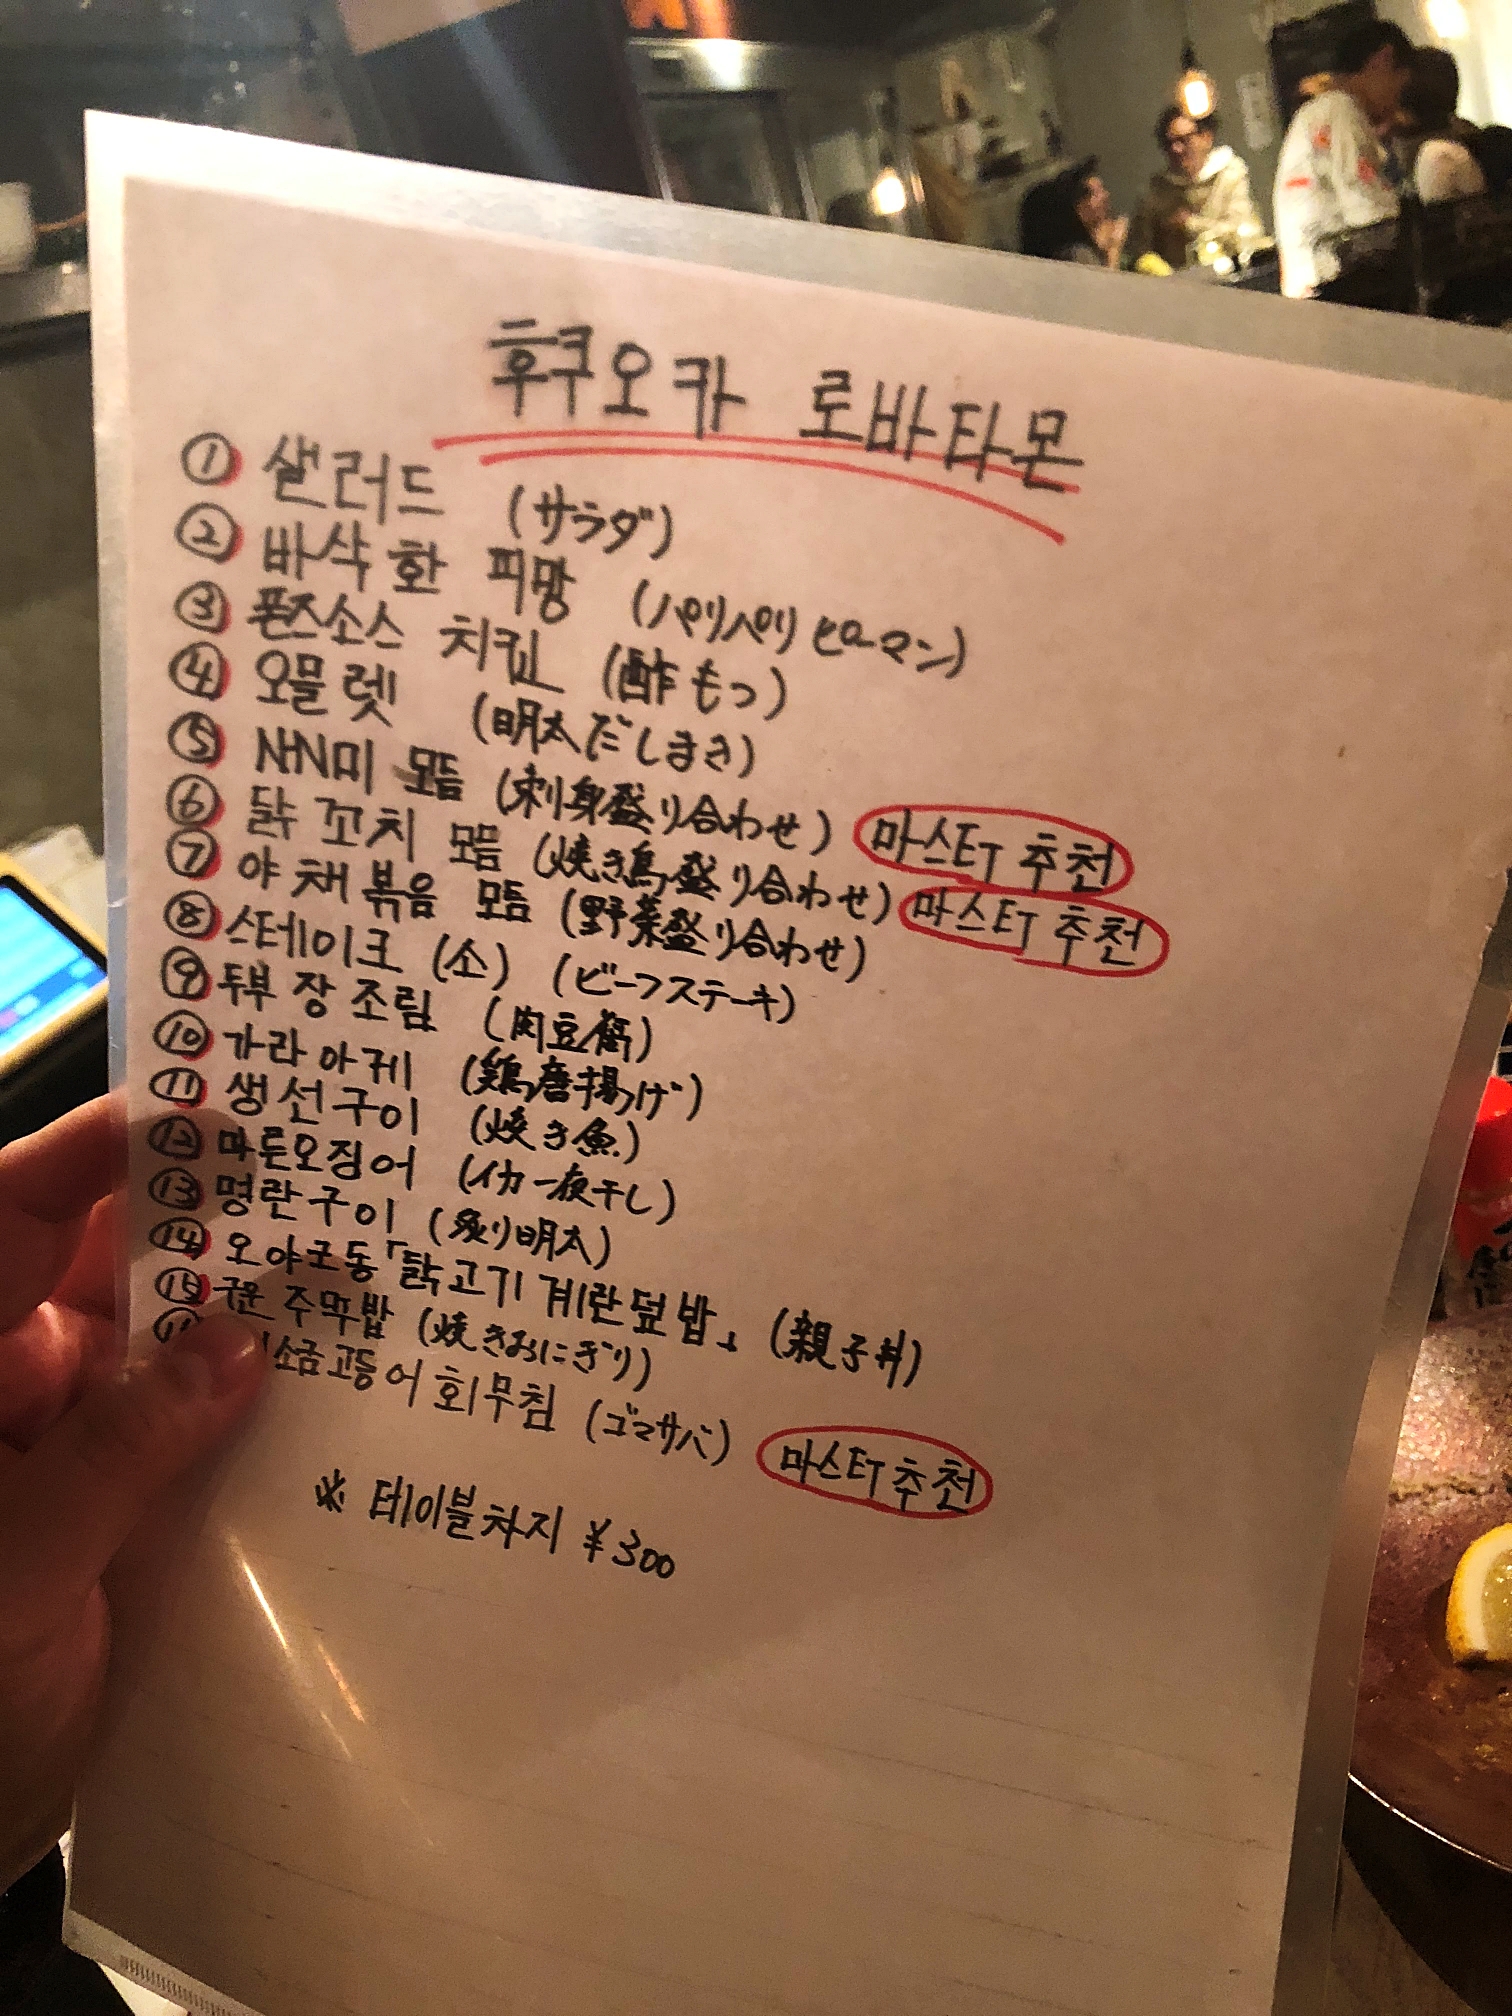 후쿠오카 로바타몬
① 샐러드 (サラダ)
② 바삭한 피망 (パリパリピーマン)
③ 폰즈소스 치킨 (酢もつ)
④ 오믈렛 (明太だしまき)
⑤ 사시미 모듬 (刺身盛り合わせ) 마스터 추천
⑥ 닭꼬치 모듬 (焼き鳥盛り合わせ) 마스터 추천
⑦ 야채볶음 모듬 (野菜盛り合わせ)
⑧ 스테이크 (소) (ビーフステーキ)
⑨ 두부 장조림 (肉豆腐)
⑩ 가라아게 (鶏唐揚げ)
⑪ 생선구이 (焼き魚)
⑫ 마른오징어 (イカ一夜干し)
⑬ 명란구이 (炙り明太)
⑭ 오야코동「닭고기 계란덮밥」 (親子丼)
⑮ 구운 주먹밥 (焼きおにぎり)
소금고등어회무침 (ゴマサバ) 마스터 추천
※ 테이블차지 ¥300